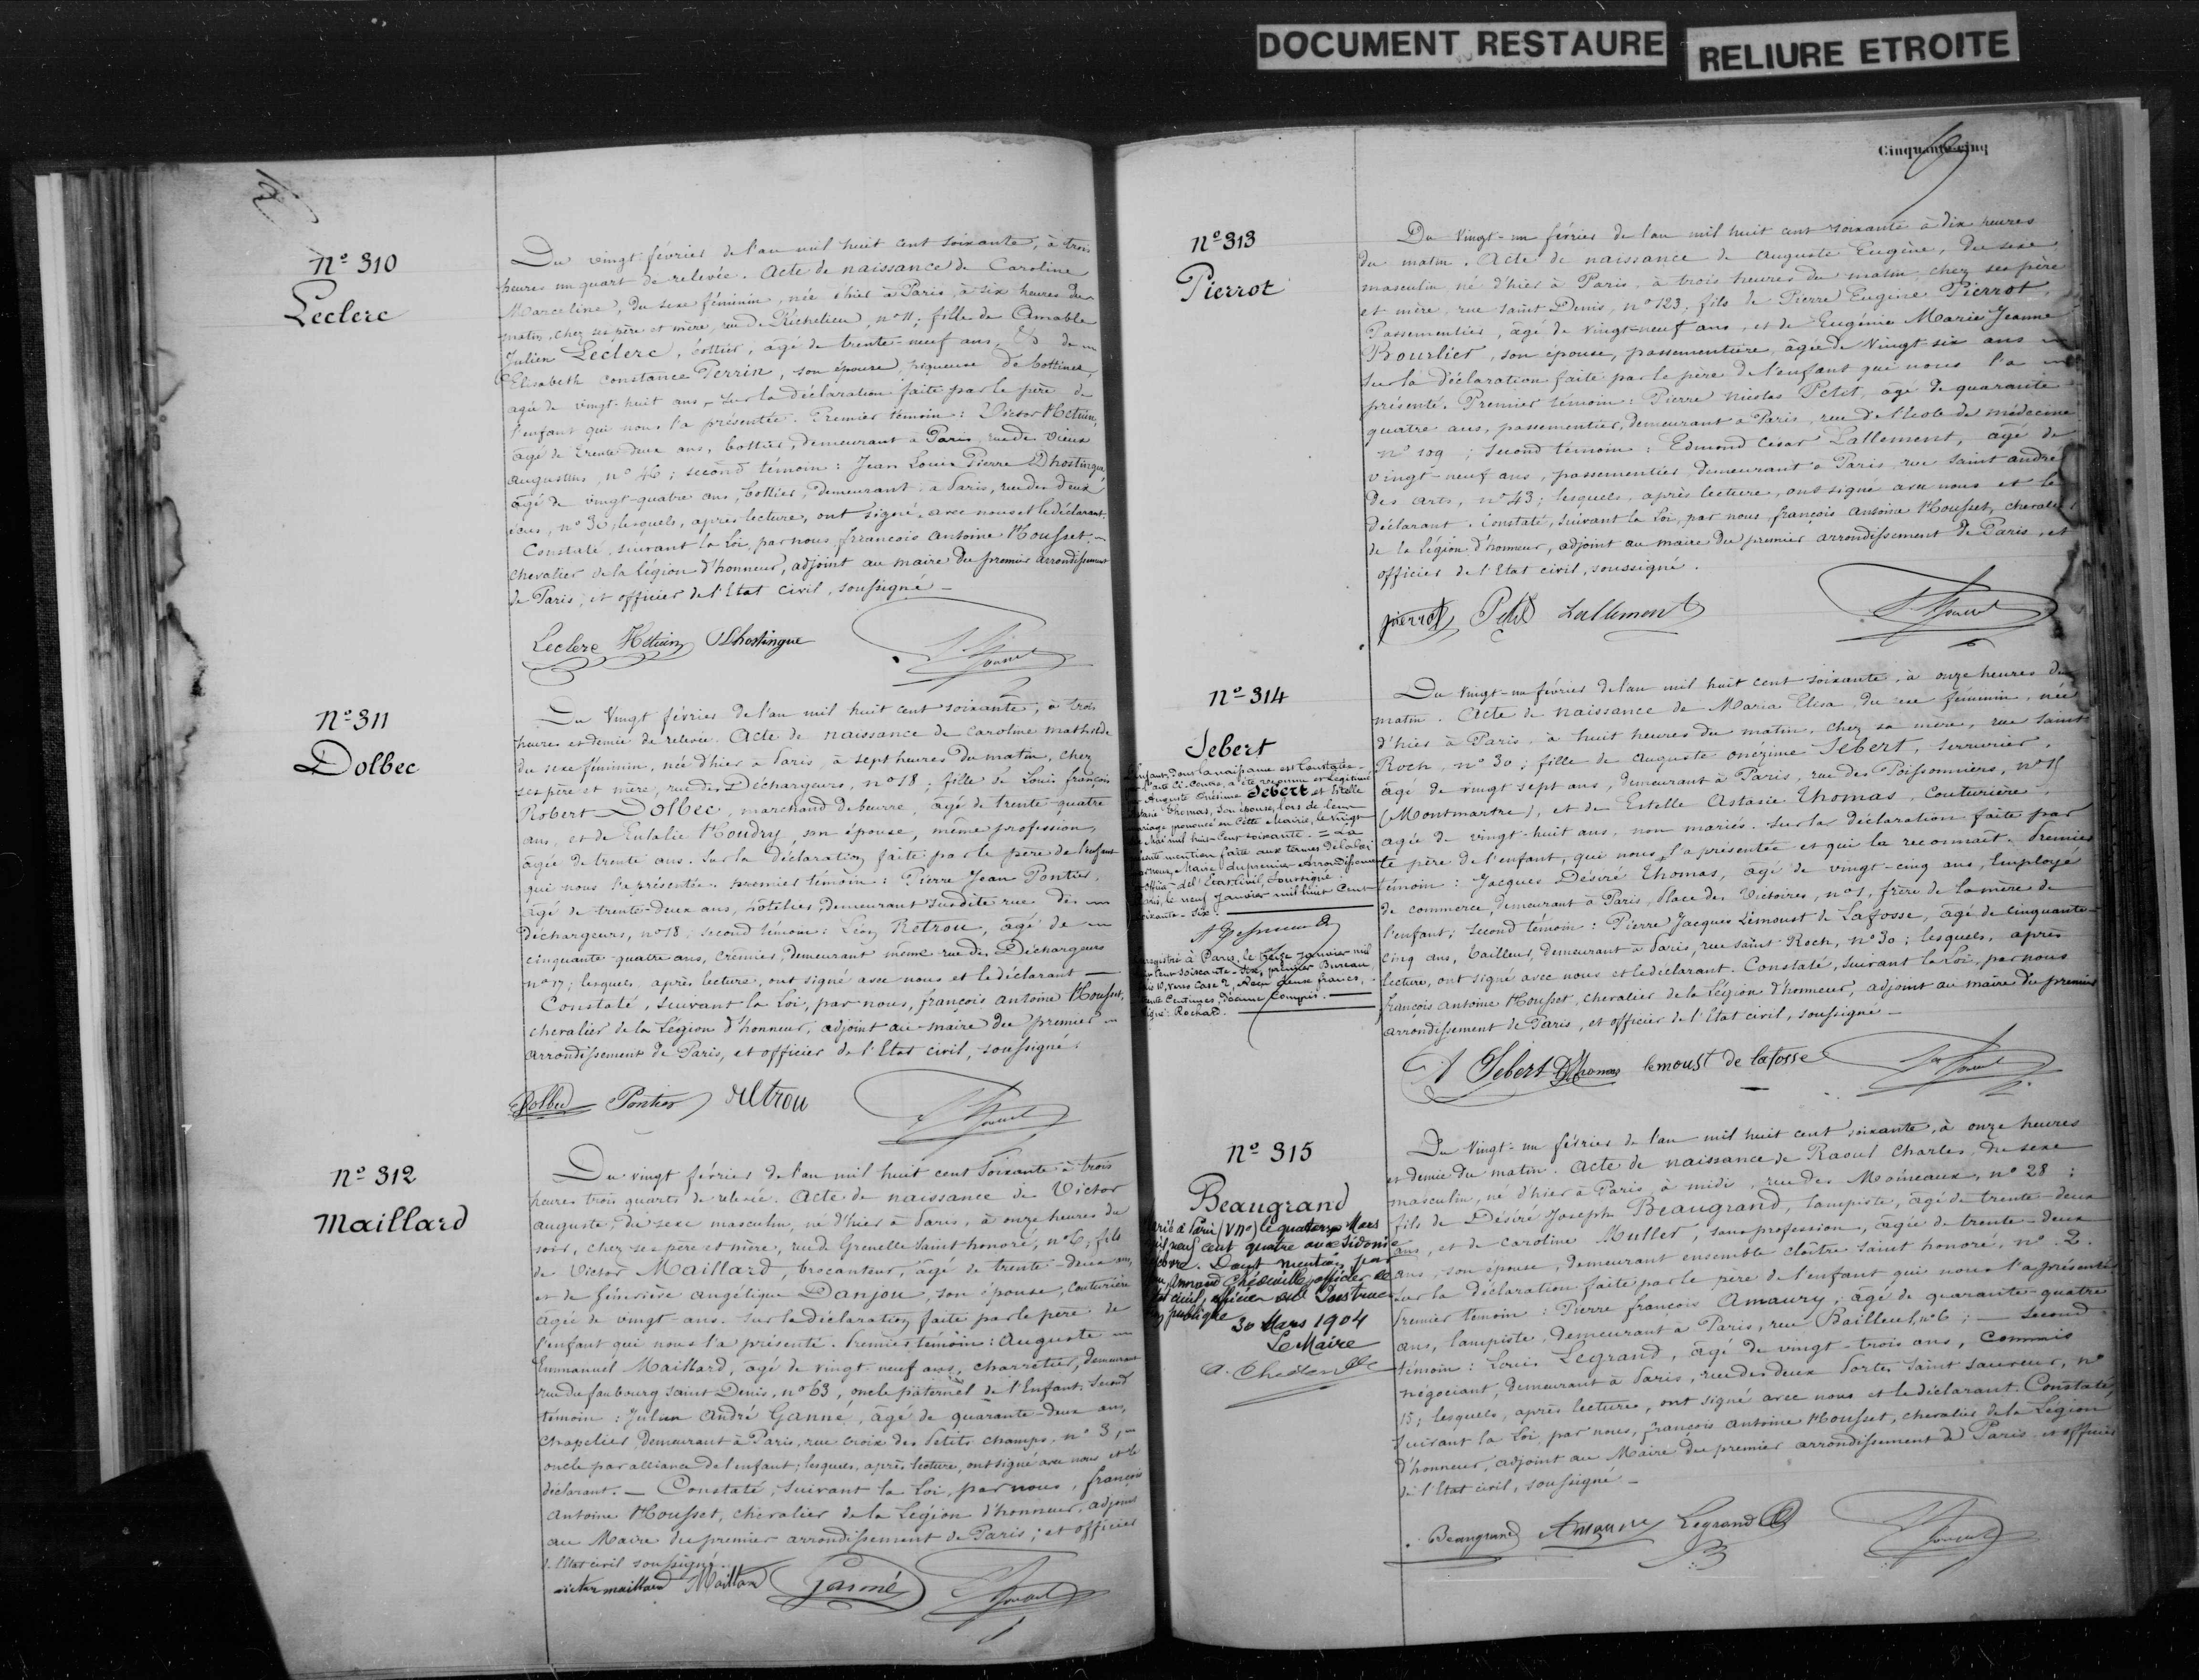 DOCUMENT RESTAURE
RELIURE ETROITE
Nº 310
Leclerc
Du vingt février de l'an mil huit cent soixante, à trois
heures un quart de relevée. Acte de naissance de Caroline
Marceline, du sexe féminin, née d'hier à Paris, à six heures du
matin, chez ses père et mère, rue de Richelieu, nº 11; fille de Amable
Julien Leclerc, bottier, âgé de trente-neuf ans, et de
Elisabeth Constance Perrin, son épouse, piqueuse de bottines,
agée de vingt-huit ans, sur la déclaration faite par le père de
l'enfant qui nous l'a présentée. Premier témoin: Victor Hétuin,
âgé de trente deux ans, bottier, demeurant à Paris, rue des Vieux
augustins, nº 46; second témoin: Jean Louis Pierre Dhostingue,
âgé de vingt-quatre ans, bottier, demeurant à Paris, rue des deux
écus, nº 30, lesquels, après lecture, ont signé, avec nous et le déclarant.
Constaté, suivant la Loi, par nous, françois antoine Housset,
chevalier de la légion d'honneur, adjoint au maire du premier arrondissement
de Paris, et officier de l'Etat civil, soussigné
Leclerc Hétuin Dhostingue
Nº 311
Dolbec
Du Vingt février de l'an mil huit cent soixante, à trois
heures et demie de relevée. Acte de naissance de Caroline mathilde
du sexe féminin, née d'hier à Paris, à sept heures du matin, chez
ses père et mère, rue des Déchargeurs, nº 18; fille de Louis françois
Robert Dolbec, marchand de beurre, âgé de trente-quatre
ans, et de Eulalie Houdry, son épouse, même profession,
âgée de trente ans. Sur la déclaration faite par le père de l'enfant
qui nous l'a présentée. premier témoin: Pierre Jean Pontier,
âgé de trente-deux ans, hôtelier, demeurant susdite rue des
déchargeurs, nº 18; second témoin: Léon Retrou, âgé de
cinquante quatre ans, crémier, demeurant même rue des Déchargeurs
nº 17; lesquels, après lecture, ont signé avec nous et le déclarant
Constaté, suivant la Loi, par nous, françois antoine Housset,
chevalier de la Légion d'honneur, adjoint au maire du premier
arrondissement de Paris, et officier de l'Etat civil, soussigné.
Dolbec Pontier Retrou
Nº 312
Maillard
Du vingt février de l'an mil huit cent soixante à trois
heures trois quarts de relevée. Acte de naissance de Victor
auguste, du sexe masculin, né d'hier à Paris, à onze heures du
soir, chez ses père et mère, rue de Grenelle Saint honoré, nº 6; fils
de Victor Maillard, brocanteur, âgé de trente-deux ans,
et de Géneviève angélique Danjou, son épouse, couturière
âgée de vingt ans. Sur la déclaration faite par le père de
l'enfant qui nous l'a présenté. Premier témoin: Auguste
Emmanuel Maillard, âgé de vingt neuf ans, charretier, demeurant
rue du faubourg Saint Denis, nº 63, oncle paternel de l'Enfant. Second
témoin: Julien André Ganné, âgé de quarante-deux ans,
chapelier, demeurant à Paris, rue croix des Petits champs, nº 3,
oncle par alliance de l'enfant; lesquels, après lecture, ont signé avec nous et le
déclarant. — Constaté, suivant la Loi, par nous, françois
Antoine Housset, chevalier de la Légion d'honneur, adjoint
au Maire du premier arrondissement de Paris, et officier
de l'Etat civil soussigné.
victor maillard Maillard Ganné
Cinquante-cinq
Nº 313
Pierrot
Du Vingt-un février de l'an mil huit cent soixante à dix heures
du matin. Acte de naissance de Auguste Eugène, du sexe
masculin né d'hier à Paris, à trois heures du matin, chez ses père
et mère, rue Saint Denis, nº 123, fils de Pierre Eugène Pierrot,
Passementier, âgé de vingt-neuf ans, et de Eugénie Marie Jeanne
Bourlier, son épouse, passementière, âgée de vingt-six ans
sur la déclaration faite par le père de l'enfant qui nous l'a
présenté. Premier témoin: Pierre nicolas Petit, âgé de quarante
quatre ans, passementier, demeurant à Paris, rue de l'école de médecine
nº 109; second témoin: Edmond César Lallement, âgé de
vingt-neuf ans, passementier, demeurant à Paris, rue Saint andré
des arts, nº 43; lesquels, après lecture, ont signé avec nous et le
déclarant. Constaté, suivant la Loi, par nous, françois antoine Housset, chevalier
de la légion d'honneur, adjoint au maire du premier arrondissement de Paris, et
officier de l'Etat civil, soussigné.
pierrot Petit Lallement
Nº 314
Sebert
L'enfant, dont la naissance est constatée
l'acte ci-contre, a été reconnue et légitimée
Auguste Onésime Sebert et Estelle
Astasie Thomas, son épouse, lors de leur
mariage prononcé en cette Mairie, le vingt
Mai mil huit cent soixante. = La
présente mention faite aux termes de la loi
Maire du premier Arrondissement
officier de l'Etat civil, soussigné.
Paris, le neuf janvier mil huit cent
soixante-six.
Enregistré à Paris, le treize janvier mil
huit cent soixante-six, premier Bureau
verso case 2, Reçu deux francs,
trente centimes, décime compris.
Signé: Rochard.
Du Vingt-un février de l'an mil huit cent soixante, à onze heures du
matin. Acte de naissance de Maria Elisa, du sexe féminin, née
d'hier à Paris, à huit heures du matin, chez sa mère, rue Saint
Roch, nº 30; fille de Auguste onézime Sebert, serrurier,
âgé de vingt sept ans, demeurant à Paris, rue des Poissonniers, nº 15
(Montmartre), et de Estelle Astasie Thomas, couturière,
agée de vingt-huit ans, non mariés. Sur la déclaration faite par
le père de l'enfant, qui nous l'a présentée et qui la reconnaît. Premier
témoin: Jacques Désiré Thomas, âgé de vingt-cinq ans, Employé
de commerce, demeurant à Paris, place des Victoires, nº 1, frère de la mère de
l'enfant; second témoin: Pierre Jacques Lemoust de Lafosse, âgé de cinquante-
cinq ans, tailleur, demeurant à Paris, rue Saint Roch, nº 30; lesquels, après
lecture, ont signé avec nous et le déclarant. Constaté, suivant la Loi, par nous
françois Antoine Housset, chevalier de la Légion d'honneur, adjoint au maire du premier
arrondissement de Paris, et officier de l'Etat civil, soussigné
A Sebert DThomas lemoust de lafosse
Nº 315
Beaugrand
Marié à Paris (Vne) le quatorze Mars
mil neuf cent quatre avec Sidonie
Dont mention par
Armand officier de
l'état civil, officier de l'Instruc
tion publique
30 Mars 1904
Le Maire
Du Vingt-un février de l'an mil huit cent soixante, à onze heures
et demie du matin. Acte de naissance de Raoul Charles, du sexe
masculin, né d'hier à Paris, à midi, rue des Moineaux, nº 28;
fils de Désiré Joseph Beaugrand, lampiste, âgé de trente-deux
ans, et de Caroline Muller, sans profession, âgée de trente-deux
ans, son épouse, demeurant ensemble cloître Saint honoré, nº 2
sur la déclaration faite par le père de l'enfant qui nous l'a présenté
Premier témoin: Pierre françois Amaury, âgé de quarante-quatre
ans, lampiste, demeurant à Paris, rue Bailleul, nº 6; — Second
témoin: Louis Legrand, âgé de vingt-trois ans, commis
négociant, demeurant à Paris, rue des deux Portes Saint sauveur, nº
15; lesquels, après lecture, ont signé avec nous et le déclarant. Constaté,
suivant la Loi, par nous, françois Antoine Housset, chevalier de la Légion
d'honneur, adjoint au Maire du premier arrondissement de Paris et officier
de l'Etat civil, soussigné
Beaugrand Amaury Legrand